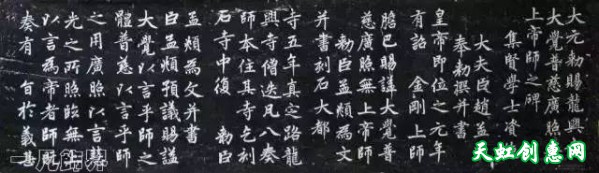 大元勑賜龍興
大覺普慈廣照
上帝師之碑
集賢學士資
大夫臣趙孟
奉勑撰并書
皇帝即位之元年
有詔 金剛上師
膽巴賜謚大覺普
慈廣照無上帝師
勑臣孟頫為文
并書刻石大都
寺五年真定路龍
興寺僧迭凡八奏
師本住其寺乞刻
石寺中復 勑臣
孟頫為文并書
臣孟頫預議賜謚
大覺以言乎師之
體普慈以言乎師
之用廣照以言慧
光之所照臨無上
以言為帝者師既
奏有 旨於義甚
天虹创惠网